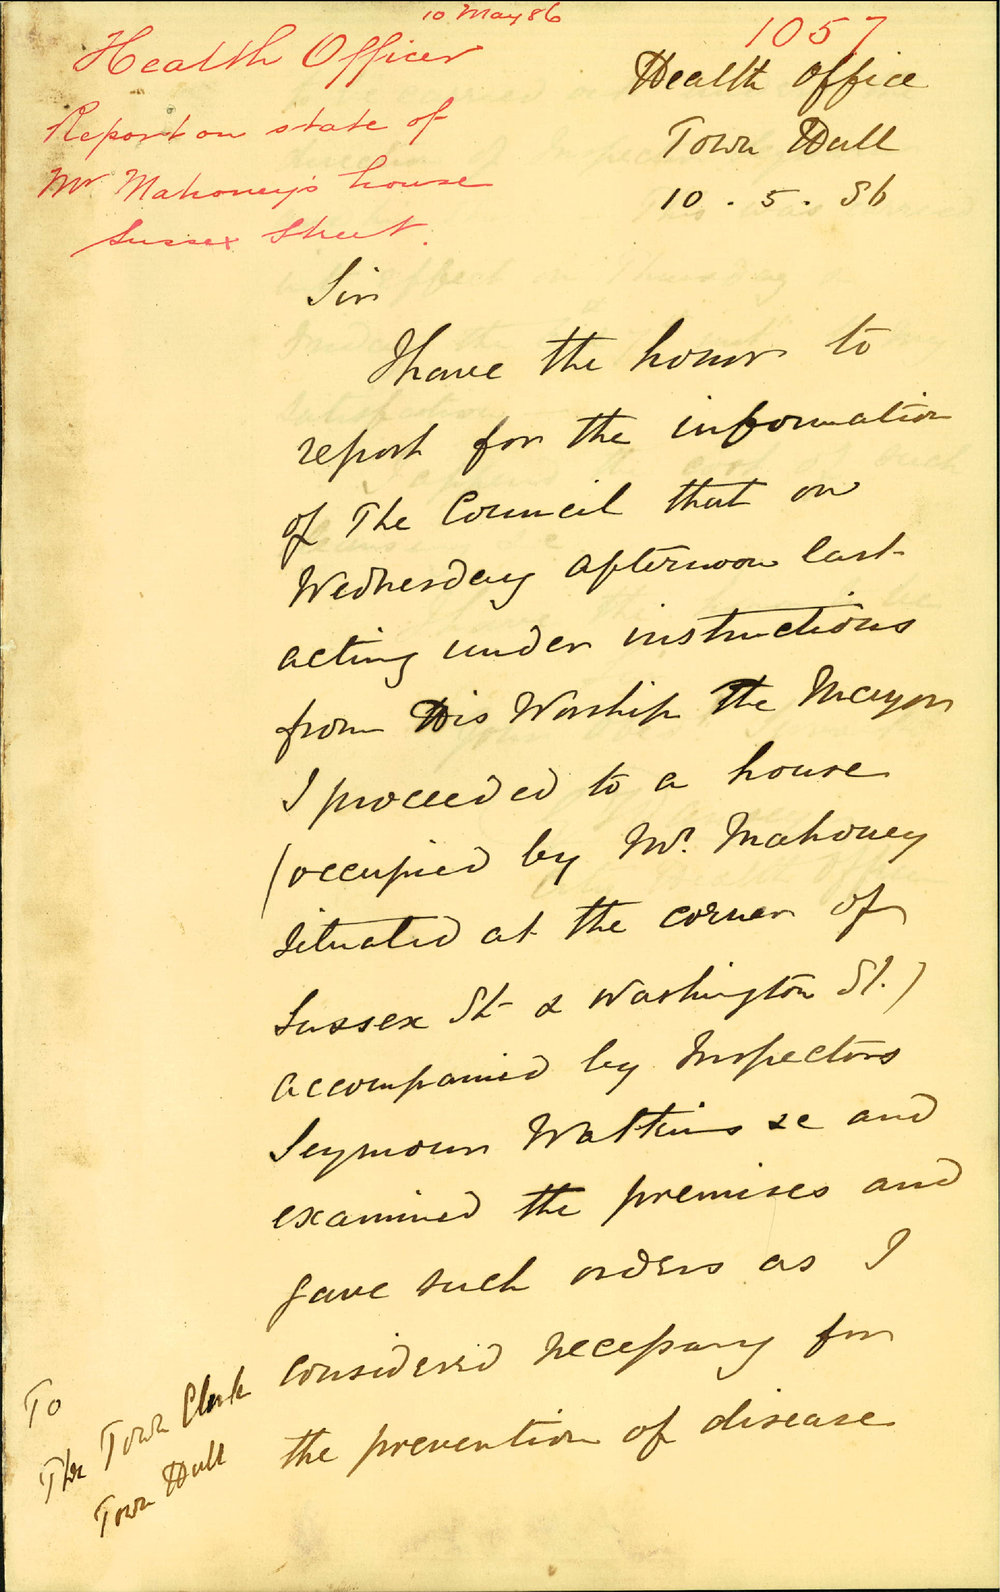 10 May 86
1057
Health Officer
Report on state of
Mr Mahoney's house
Sussex Street.
Health Office
Town Hall
10 . 5 . 86
Sir
I have the honor to
report for the information
of The Council that on
Wednesday afternoon last
acting under instructions
from His Worship The Mayor
I proceeded to a house
(occupied by Mr. Mahoney
situated at the corner of
Sussex St & Washington St.)
accompanied by Inspectors
Seymour Watkins &c and
examined the premises and
gave such orders as I
considered necessary for
the prevention of disease
To
The Town Clerk
Town Hall